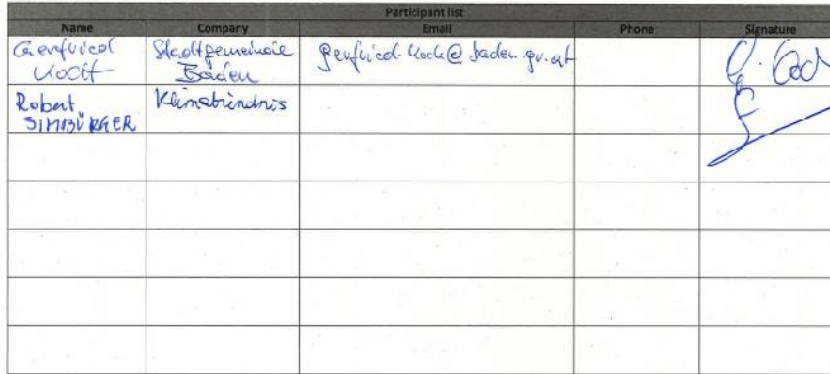 Participant list
Name Company Email Phone Signature
Gerfried Koch Stadtgemeinde Baden gerfried.koch@baden.gv.at
Robert SIMBÜRGER Klimabündnis